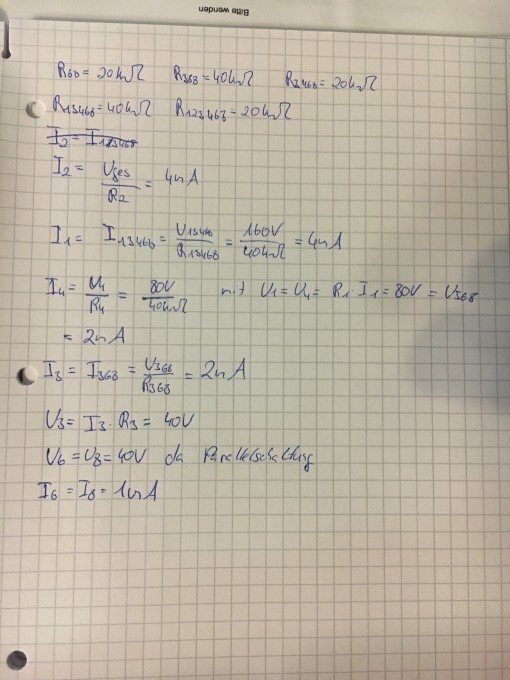 Bitte wenden
R68 = 20kΩ R368 = 40kΩ R3468 = 20kΩ
R13468 = 40kΩ R123468 = 20kΩ
I2 = Uges/R2 = 4mA
I1 = I13468 = U13468/R13468 = 160V/40kΩ = 4mA
I4 = U4/R4 = 80V/40kΩ mit U1 = U4 = R1 · I1 = 80V = U368
= 2mA
I3 = I368 = U368/R368 = 2mA
U3 = I3 · R3 = 40V
U6 = U8 = 40V da Parallelschaltung
I6 = I8 = 1mA